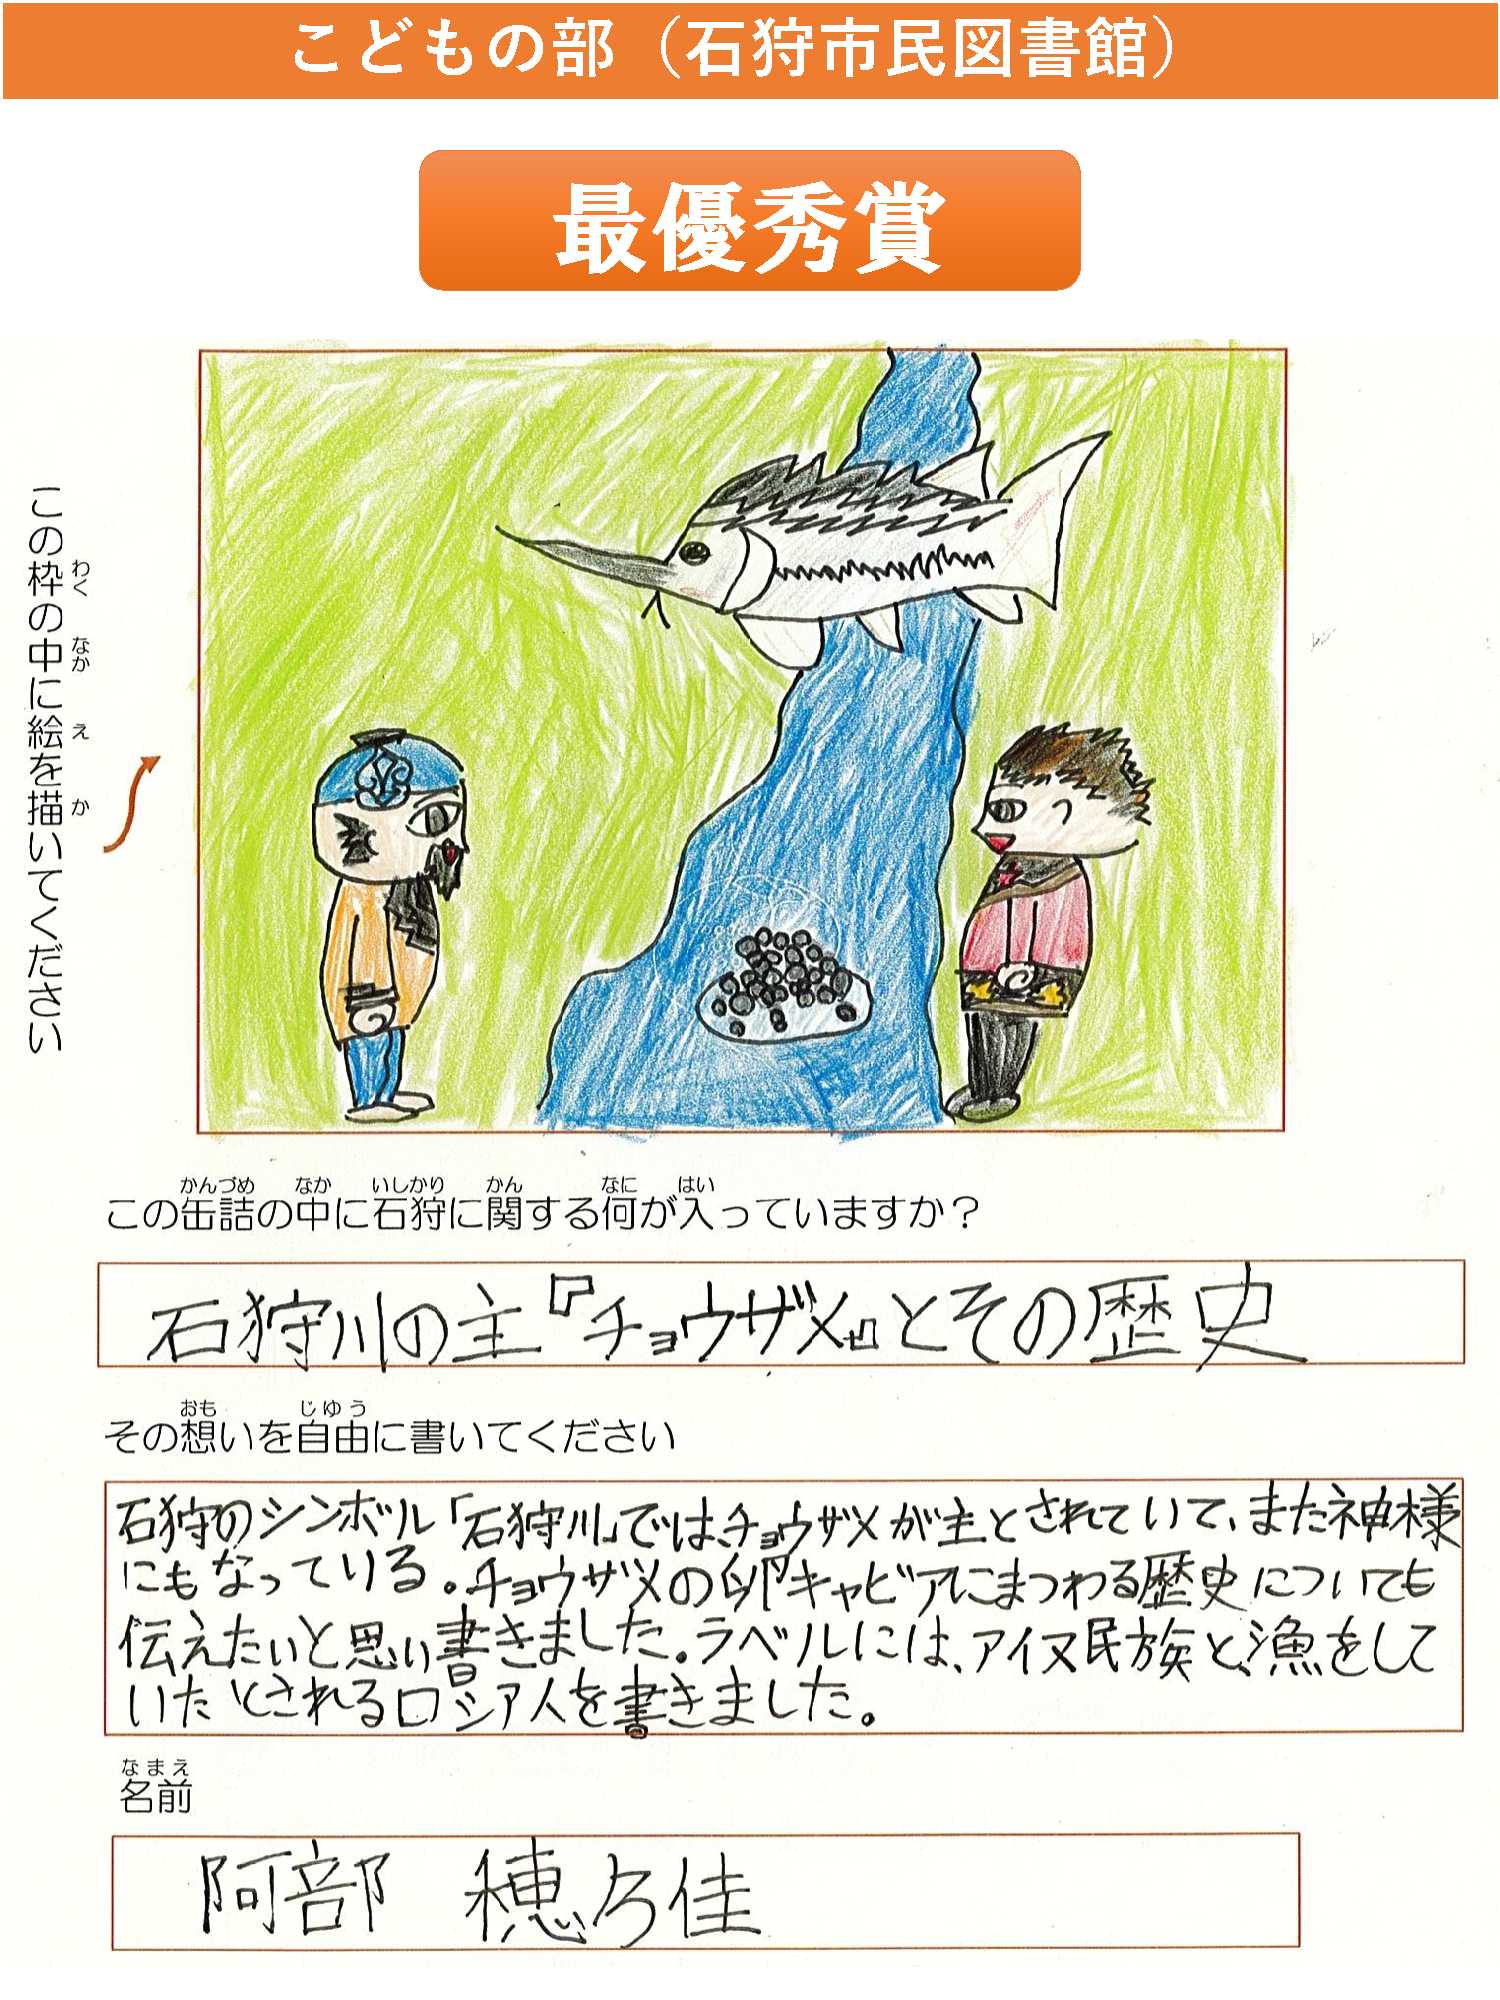 こどもの部（石狩市民図書館）
最優秀賞
この枠の中に絵を描いてください
わく なか え か
かんづめ なか いしかり かん なに はい
この缶詰の中に石狩に関する何が入っていますか？
石狩川の主『チョウザメ』とその歴史
おも じゆう
その想いを自由に書いてください
石狩のシンボル「石狩川」では、チョウザメが主とされていて、また神様
にもなっている。チョウザメの卵『キャビア』にまつわる歴史についても
伝えたいと思い書きました。ラベルには、アイヌ民族と、漁をして
いたとされるロシア人を書きました。
なまえ
名前
阿部 穂乃佳